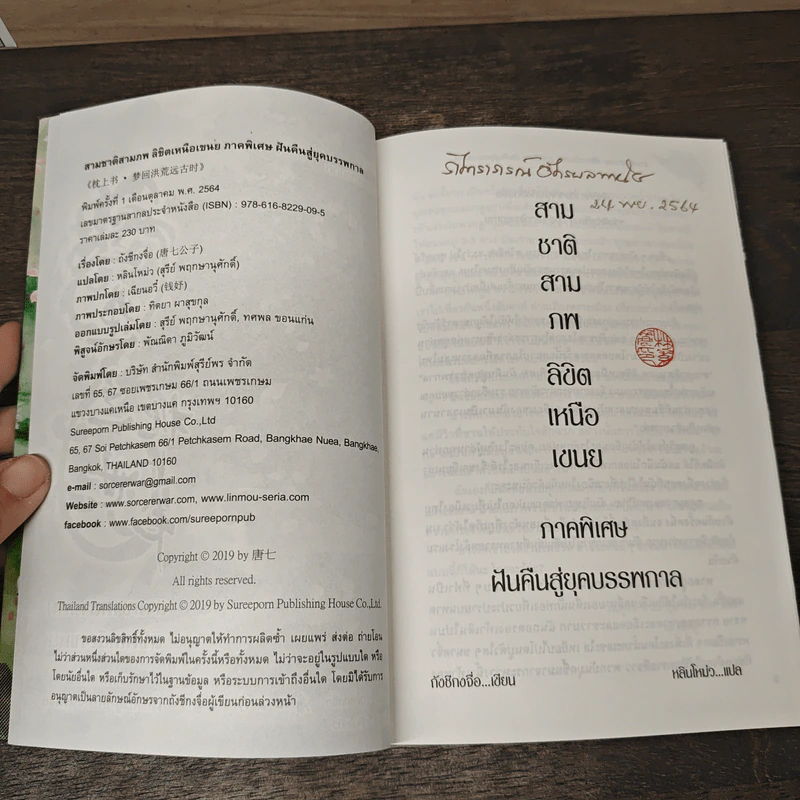 สามชาติสามภพ ลิขิตเหนือเขนย ภาคพิเศษ ฝันคืนสู่ยุคบรรพกาล
《枕上书·梦回洪荒远古时》
พิมพ์ครั้งที่ 1 เดือนตุลาคม พ.ศ. 2564
เลขมาตรฐานสากลประจำหนังสือ (ISBN) : 978-616-8229-09-5
ราคาเล่มละ 230 บาท
เรื่องโดย : ถังชีกงจื่อ (唐七公子)
แปลโดย : หลินโหม่ว (สุรีย์ พฤกษานุศักดิ์)
ภาพปกโดย : เฉียนอวี๋ (钱妤)
ภาพประกอบโดย : ทิตยา ผาสุขกุล
ออกแบบรูปเล่มโดย : สุรีย์ พฤกษานุศักดิ์, ทศพล ขอนแก่น
พิสูจน์อักษรโดย : พัณณิดา ภูมิวัฒน์
จัดพิมพ์โดย : บริษัท สำนักพิมพ์สุรีย์พร จำกัด
เลขที่ 65, 67 ซอยเพชรเกษม 66/1 ถนนเพชรเกษม
แขวงบางแคเหนือ เขตบางแค กรุงเทพฯ 10160
Sureeporn Publishing House Co.,Ltd
65, 67 Soi Petchkasem 66/1 Petchkasem Road, Bangkhae Nuea, Bangkhae,
Bangkok, THAILAND 10160
e-mail : sorcererwar@gmail.com
Website : www.sorcererwar.com, www.linmou-seria.com
facebook : www.facebook.com/sureepornpub
Copyright © 2019 by 唐七
All rights reserved.
Thailand Translations Copyright © 2019 by Sureeporn Publishing House Co.,Ltd.
ขอสงวนลิขสิทธิ์ทั้งหมด ไม่อนุญาตให้ทำการผลิตซ้ำ เผยแพร่ ส่งต่อ ถ่ายโอน
ไม่ว่าส่วนหนึ่งส่วนใดของการจัดพิมพ์ในครั้งนี้หรือทั้งหมด ไม่ว่าจะอยู่ในรูปแบบใด หรือ
โดยนัยอื่นใด หรือเก็บรักษาไว้ในฐานข้อมูล หรือระบบการเข้าถึงอื่นใด โดยมิได้รับการ
อนุญาตเป็นลายลักษณ์อักษรจากถังชีกงจื่อผู้เขียนก่อนล่วงหน้า
24. พย. 2564
สาม
ชาติ
สาม
ภพ
ลิขิต
เหนือ
เขนย
ภาคพิเศษ
ฝันคืนสู่ยุคบรรพกาล
ถังชีกงจื่อ...เขียน
หลินโหม่ว...แปล